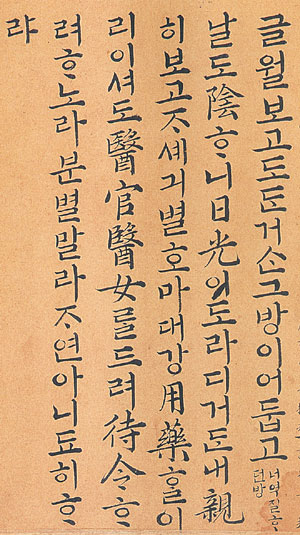 글월보고도ᄃᆞᆫ거ᄉᆞᆫ그방이어둡고
너역질ᄒᆞ
던방
날도陰ᄒᆞ니日光이도라디거든내親
히보고ᄌᆞ셰긔별호마대강用藥ᄒᆞᆯ이
리이셔도醫官醫女를드려待令ᄒᆞ
려ᄒᆞ노라분별말라ᄌᆞ연아니됴히ᄒᆞ
랴